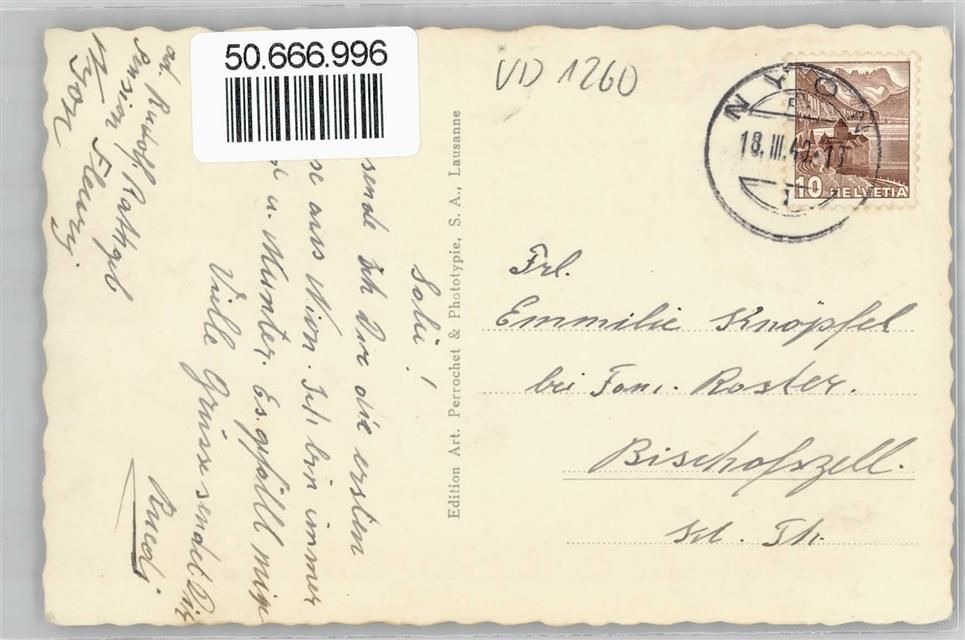 50.666.996
VD 1260
NYON
18.III.42-13
10 HELVETIA
Salü!
sende Ich Dir die ersten
se aus Nion. Ich bin immer
u. Munter. Es gefällt mir
Viele Grüsse sendet Dir
Ruedi
ad. Rudolf Rathgeb
Pension Fleury
Nyon
Edition Art. Perrochet & Phototypie, S. A., Lausanne
Frl.
Emmilie Knöpfel
bei Fam. Roster.
Bischofszell.
Kt. Th.